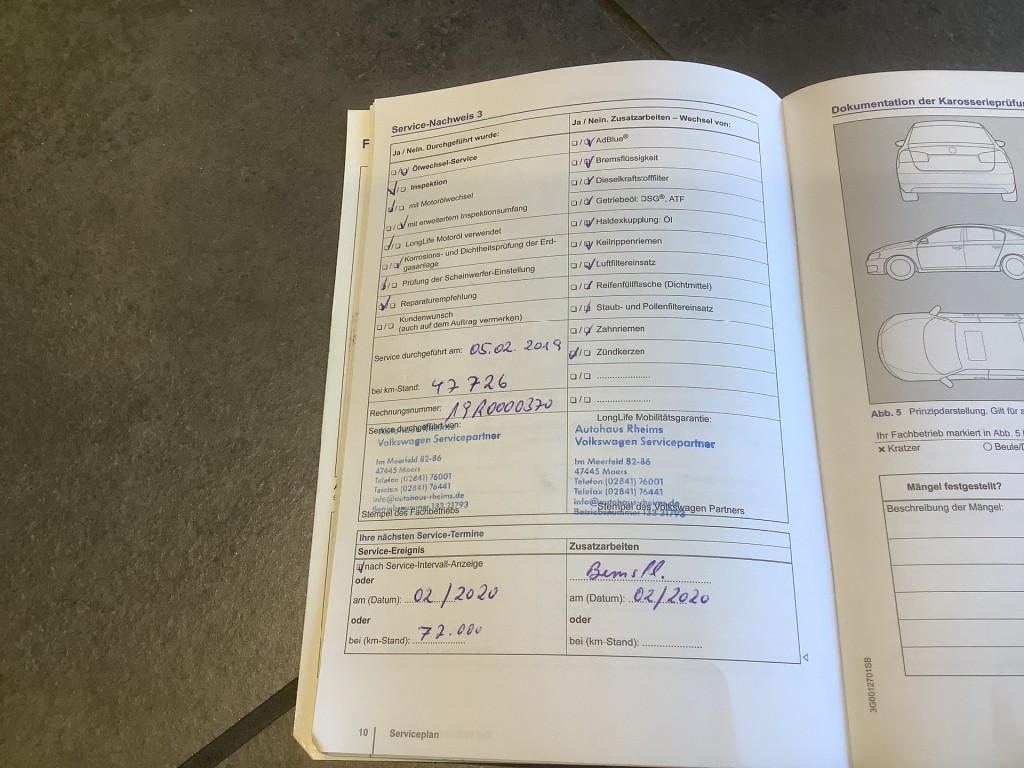 Service-Nachweis 3
Ja / Nein. Durchgeführt wurde:
Ölwechsel-Service
Inspektion
mit Motorölwechsel
mit erweitertem Inspektionsumfang
LongLife Motoröl verwendet
Korrosions- und Dichtheitsprüfung der Erd-
gasanlage
Prüfung der Scheinwerfer-Einstellung
Reparaturempfehlung
Kundenwunsch
(auch auf dem Auftrag vermerken)
Service durchgeführt am: 05.02.2019
bei km-Stand: 47726
Rechnungsnummer: 19R0000370
Service durchgeführt von:
Autohaus Rheims
Volkswagen Servicepartner
Im Meerfeld 82-86
47445 Moers
Telefon (02841) 76001
Telefax (02841) 76441
info@autohaus-rheims.de
Betriebsnummer 133 21793
Stempel des Fachbetriebs
Ja / Nein. Zusatzarbeiten – Wechsel von:
AdBlue®
Bremsflüssigkeit
Dieselkraftstofffilter
Getriebeöl: DSG®, ATF
Haldexkupplung: Öl
Keilrippenriemen
Luftfiltereinsatz
Reifenfüllflasche (Dichtmittel)
Staub- und Pollenfiltereinsatz
Zahnriemen
Zündkerzen
LongLife Mobilitätsgarantie:
Autohaus Rheims
Volkswagen Servicepartner
Im Meerfeld 82-86
47445 Moers
Telefon (02841) 76001
Telefax (02841) 76441
info@autohaus-rheims.de
Betriebsnummer 133 21793
Stempel des Volkswagen Partners
Ihre nächsten Service-Termine
Service-Ereignis
nach Service-Intervall-Anzeige
oder
am (Datum): 02/2020
oder
bei (km-Stand): 72.000
Zusatzarbeiten
am (Datum): 02/2020
oder
bei (km-Stand):
10 Serviceplan
Dokumentation der Karosserieprüfu
Abb. 5 Prinzipdarstellung. Gilt für
Ihr Fachbetrieb markiert in Abb. 5
× Kratzer
Beule/D
Mängel festgestellt?
Beschreibung der Mängel:
3G0012701SB